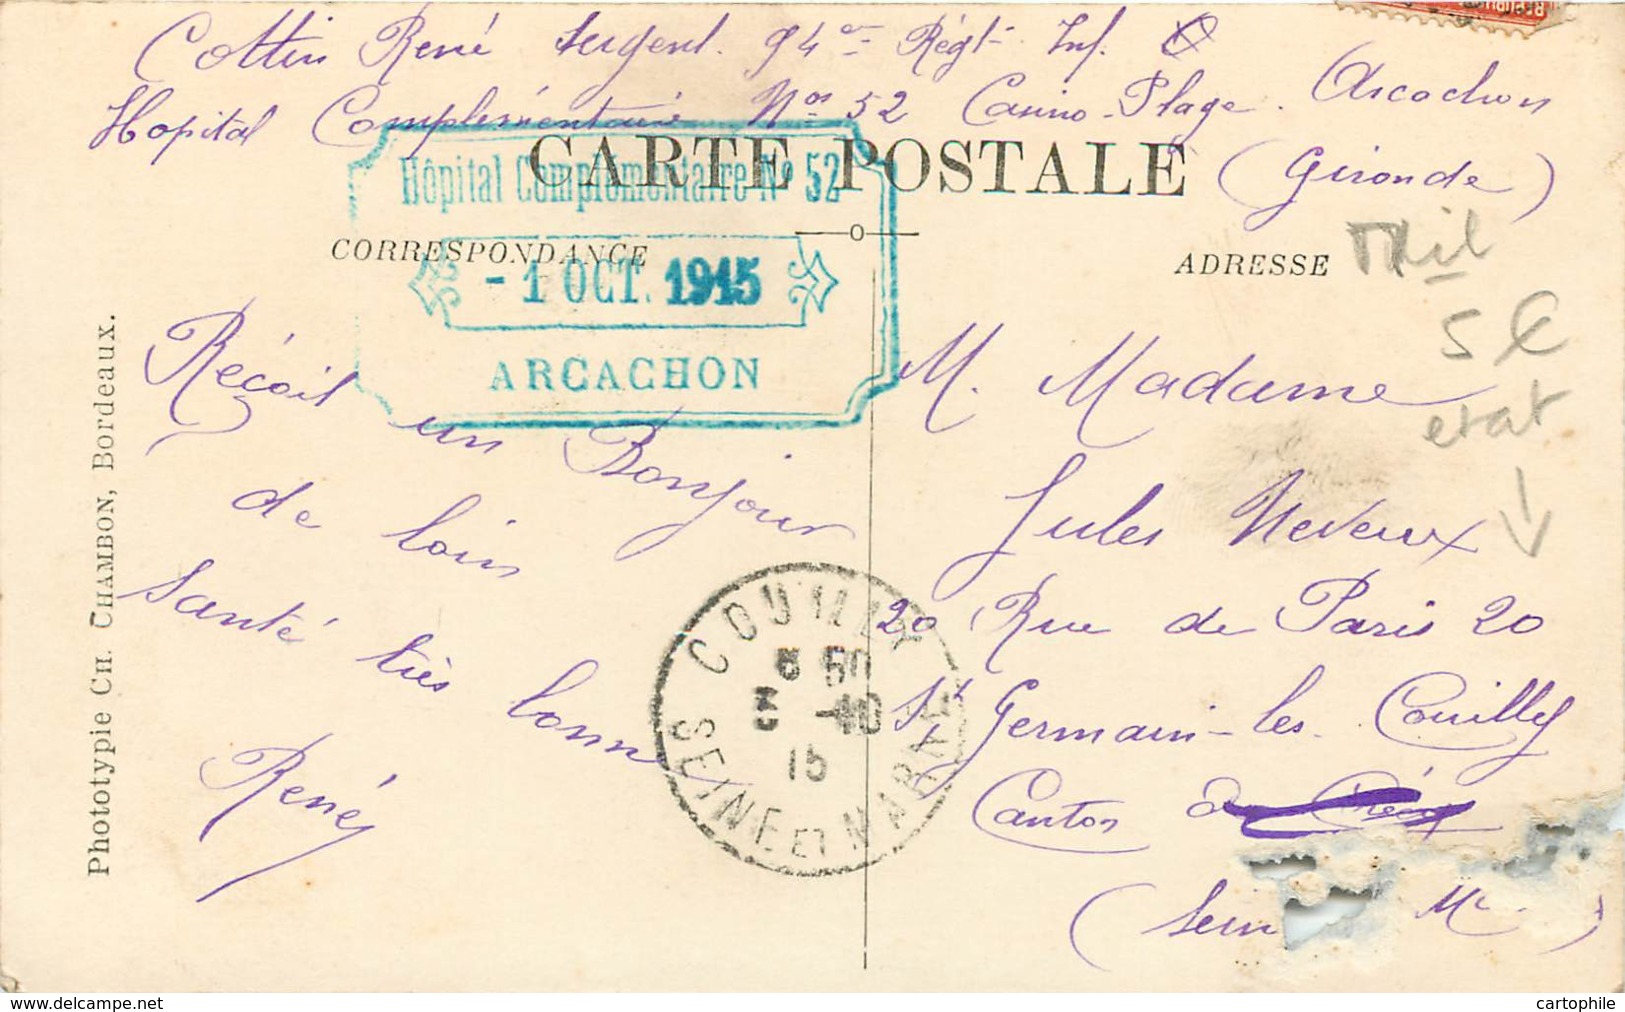 Cottin René Sergent. 94e Régt Inf.
Hopital Complémentaire Nos 52 Casino-Plage. Arcachon
(Gironde)
CARTE POSTALE
Hôpital Complémentaire No 52
- 1 OCT. 1915
ARCACHON
CORRESPONDANCE
ADRESSE
Mil
5 €
etat
Phototypie CH. CHAMBON, Bordeaux.
Reçoit un Bonjour
de loin
Santé très bonne
René
COUILLY
3 -10
15
SEINE ET MARNE
M. Madame
Jules Neveux
20 Rue de Paris 20
St Germain-les-Couilly
Canton de Crécy
(Sein Me)
www.delcampe.net
cartophile